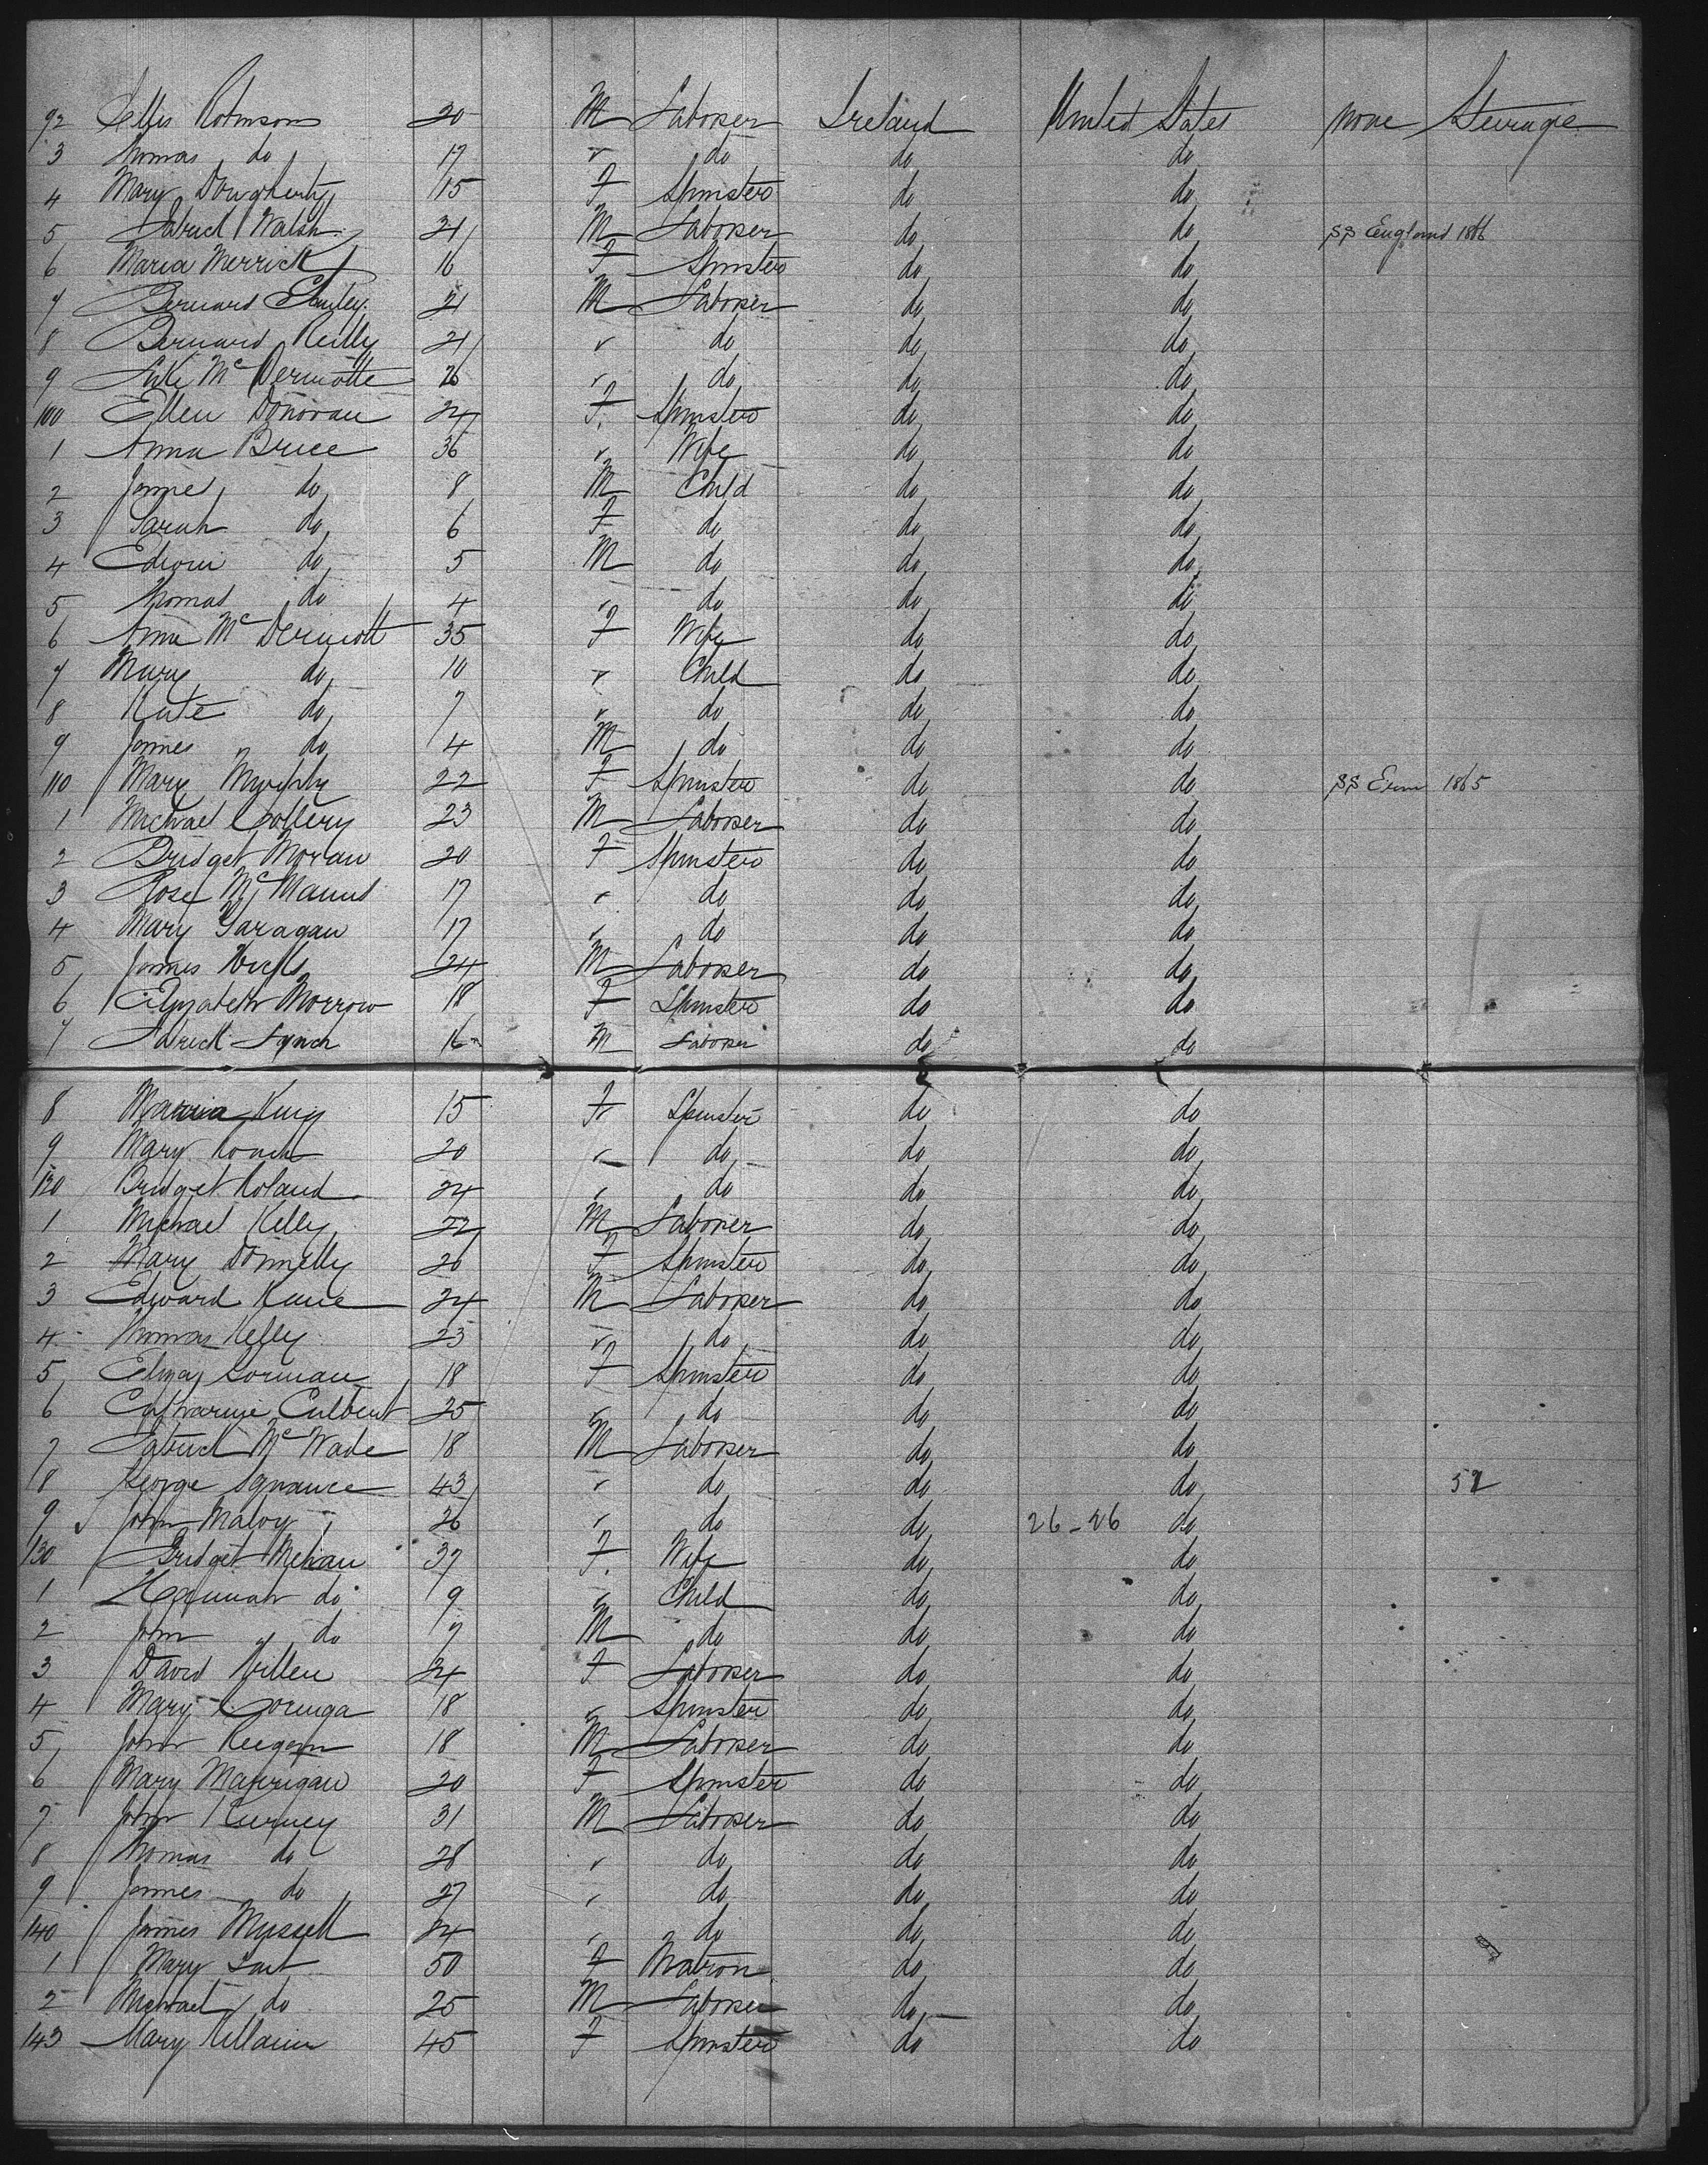 92 Robinson 20 M Laborer Ireland United States none Steerage
3 Thomas do 17 " do do do
4 Mary Dougherty 15 F Spinster do do
5 Patrick Walsh 21 M Laborer do do SS England 1866
6 Maria Merrick 16 F Spinster do do
7 Bernard 21 M Laborer do do
8 Bernard Reilly 21 " do do do
9 Luke McDermotte 26 " do do do
100 Ellen Donovan 24 F Spinster do do
1 Anna Brice 36 " Wife do do
2 James do 8 M Child do do
3 Sarah do 6 F do do do
4 Edwin do 5 M do do do
5 Thomas do 4 " do do do
6 Anne McDermott 35 F Wife do do
7 Mary do 10 " Child do do
8 Kate do 7 " do do do
9 James do 4 M do do do
110 Mary Murphy 22 F Spinster do do SS Erin 1865
1 Michael Collery 23 M Laborer do do
2 Bridget Moran 20 F Spinster do do
3 Rose McManus 17 " do do do
4 Mary Garagan 17 " do do do
5 James Hicks 24 M Laborer do do
6 Elizabeth Morrow 18 F Spinster do do
7 Patrick Lynch 16 M Laborer do do
8 Maria King 15 F Spinster do do
9 Mary Roach 20 " do do do
120 Bridget Roland 24 " do do do
1 Michael Kelly 22 M Laborer do do
2 Mary Donnelly 20 F Spinster do do
3 Edward Kane 24 M Laborer do do
4 Thomas Kelly 23 " do do do
5 Eliza Gorman 18 F Spinster do do
6 Catharine Culbert 25 " do do do
7 Patrick McWade 18 M Laborer do do
8 George Squance 43 " do do do 52
9 John Maloy 26 " do do 26-26 do
130 Bridget Mehan 37 F Wife do do
1 Hannah do 9 " Child do do
2 John do 7 M do do do
3 David Killen 24 F Laborer do do
4 Mary 18 " Spinster do do
5 John Keegan 18 M Laborer do do
6 Mary Marrigan 20 F Spinster do do
7 John Kerney 31 M Laborer do do
8 Thomas do 28 " do do do
9 James do 27 " do do do
140 James 24 " do do do
1 Mary 50 F Matron do do
2 Michael do 25 M Laborer do do
143 Mary Killain 45 F Spinster do do